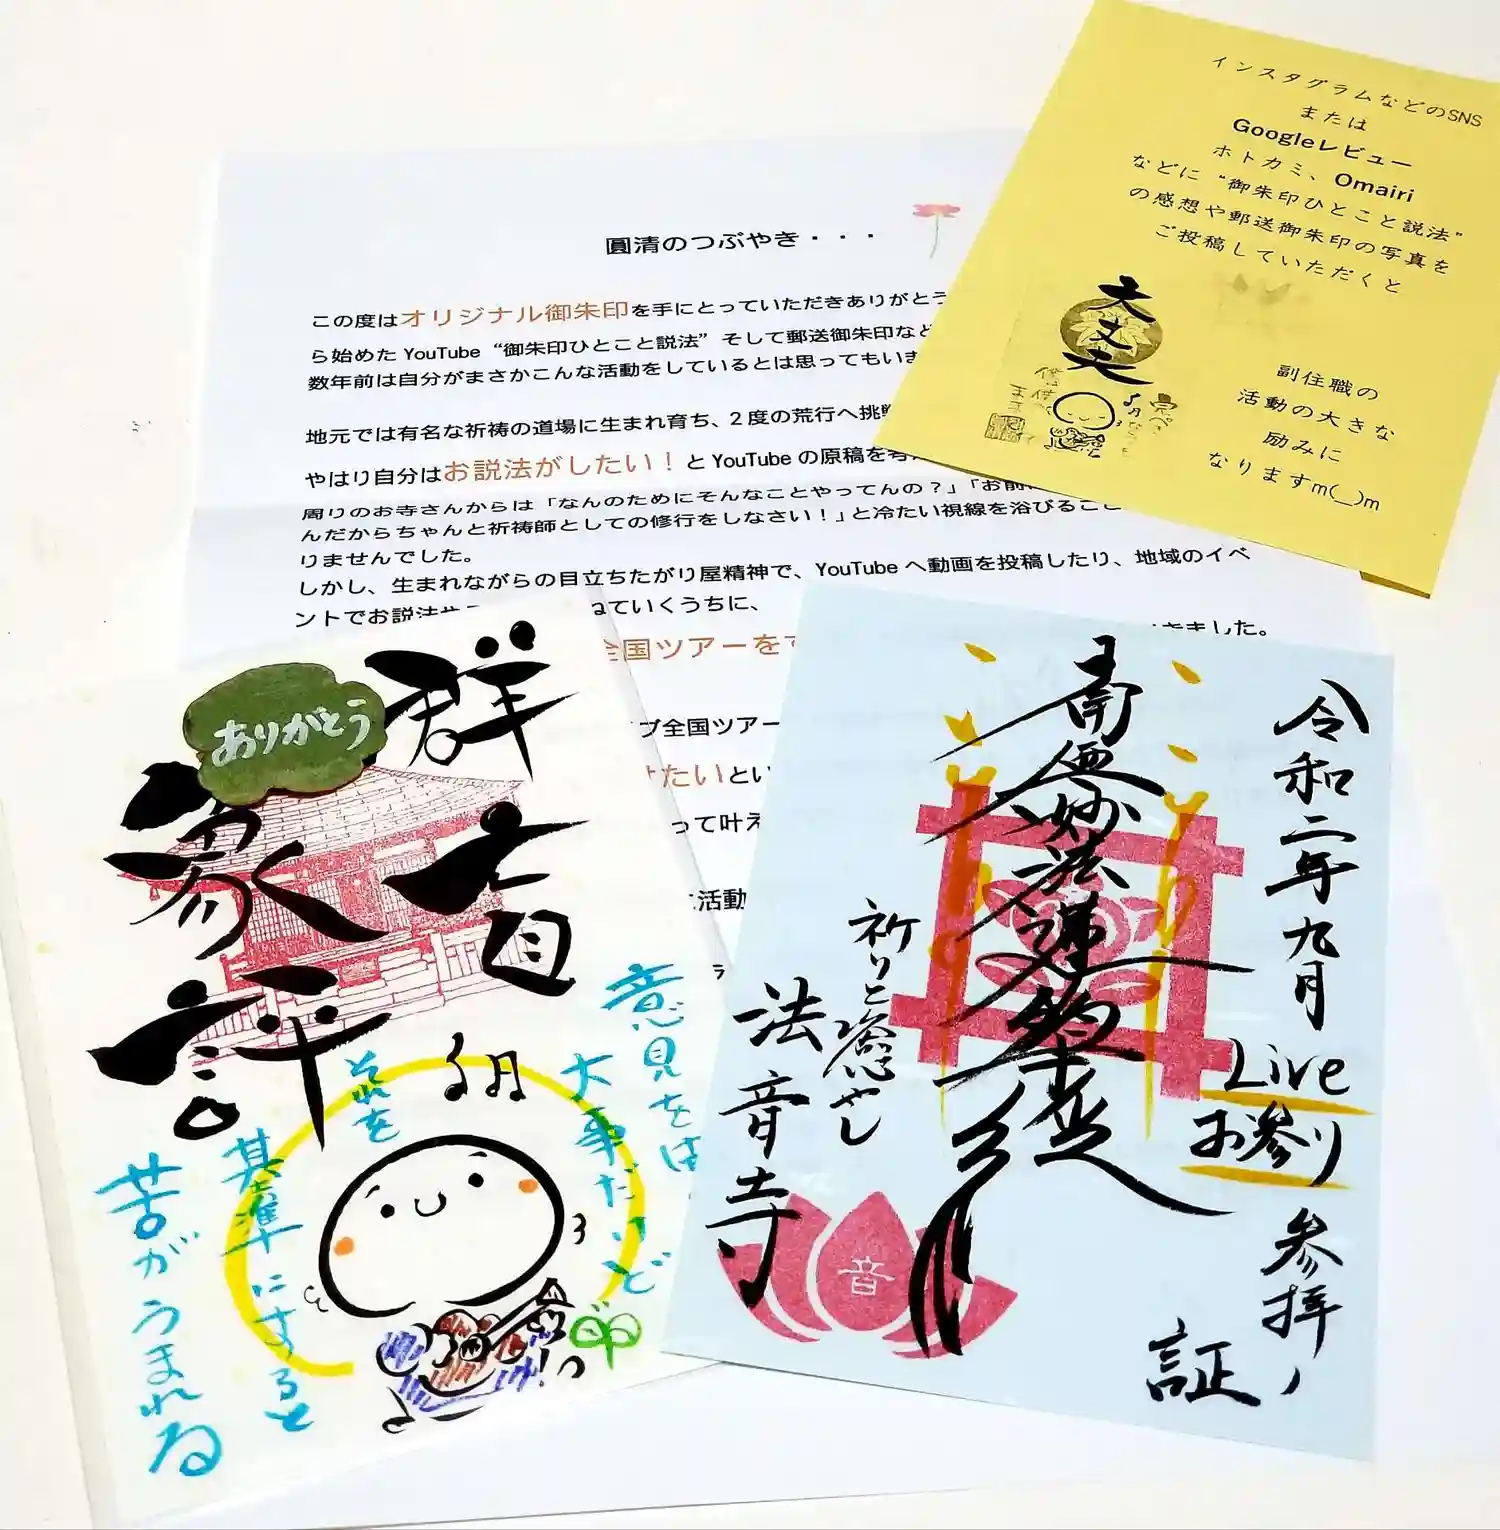 インスタグラムなどのSNS
または
Googleレビュー
ホトカミ、Omairi
などに“御朱印ひとこと説法”
の感想や郵送御朱印の写真を
ご投稿していただくと
大丈夫
副住職の
活動の大きな
励みに
なりますm(_ _)m
圓清のつぶやき・・・
この度はオリジナル御朱印を手にとっていただきありがとう
ら始めた YouTube “御朱印ひとこと説法” そして郵送御朱印など
数年前は自分がまさかこんな活動をしているとは思ってもいま
地元では有名な祈祷の道場に生まれ育ち、2度の荒行へ挑戦
やはり自分はお説法がしたい！とYouTubeの原稿を考
周りのお寺さんからは「なんのためにそんなことやってんの？」「お前
んだからちゃんと祈祷師としての修行をしなさい！」と冷たい視線を浴びること
りませんでした。
しかし、生まれながらの目立ちたがり屋精神で、YouTube へ動画を投稿したり、地域のイベ
ントでお説法や
ねていくうちに、
きました。
全国ツアーを
ブ全国ツアー
けたいとい
って叶え
活動
ありがとう
群
盲
象
評
意見を
大事だけど
それを
基準にすると
苦がうまれる
令和二年九月
Live
お参り
参拝ノ
証
南無妙法蓮華経
祈りと癒やし
法音寺
音